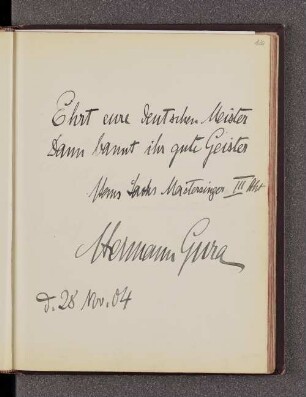 Ehrt eure deutschen Meister
Dann bannt ihr gute Geister
Hans Sachs Meistersinger III Akt
Hermann Gura
d. 28 Nov. 04